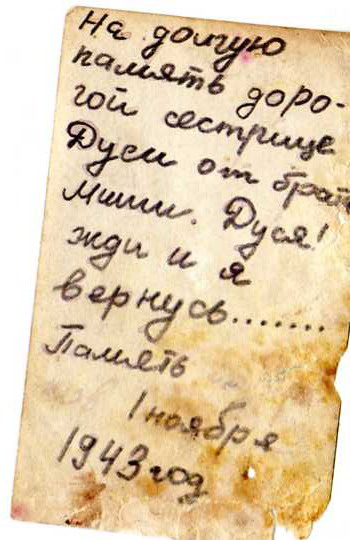 На долгую
память доро-
гой сестрице
Дуси от брата
Миши. Дуся!
жди и я
вернусь.......
Память
1 ноября
1943 год